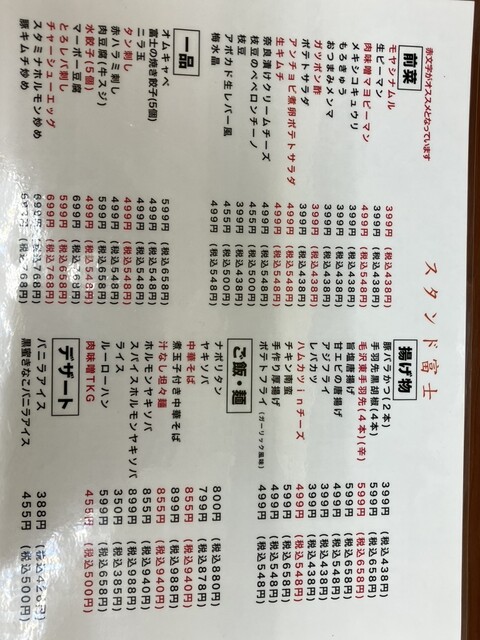 スタンド富士
赤文字がオススメとなっています
前菜
モヤシナムル 399円(税込438円)
生ピーマン 399円(税込438円)
肉味噌マヨピーマン 499円(税込548円)
メキシコキュウリ 399円(税込438円)
もろきゅう 399円(税込438円)
おつまみメンマ 399円(税込438円)
ガツポン酢 399円(税込438円)
ポテトサラダ 399円(税込438円)
アンチョビ煮卵ポテトサラダ 499円(税込548円)
生キムチ 499円(税込548円)
奈良漬けクリームチーズ 499円(税込548円)
枝豆のペペロンチーノ 455円(税込500円)
枝豆 399円(税込438円)
アボカド生レバー風 455円(税込500円)
梅水晶 499円(税込548円)
一品
オムキャベ 599円(税込658円)
富士の焼き餃子(5個) 499円(税込548円)
ニラ玉 499円(税込548円)
タン刺し 499円(税込548円)
赤ハラミ刺し 499円(税込548円)
肉豆腐(牛スジ) 599円(税込658円)
水餃子(5個) 499円(税込548円)
マーボー豆腐 699円(税込768円)
とろレバ刺し 599円(税込658円)
チャーシューエッグ 699円(税込768円)
スタミナホルモン炒め 699円(税込768円)
豚キムチ炒め 699円(税込768円)
揚げ物
豚バラかつ(2本) 399円(税込438円)
手羽先黒胡椒(4本) 599円(税込658円)
毛沢東手羽先(4本)(辛) 599円(税込658円)
旨塩唐揚げ 599円(税込658円)
甘エビの唐揚げ 499円(税込548円)
アジフライ 399円(税込438円)
レバカツ 399円(税込438円)
ハムカツinチーズ 499円(税込548円)
チキン南蛮 599円(税込658円)
手作り厚揚げ 499円(税込548円)
ポテトフライ(ガーリック風味) 499円(税込548円)
ご飯・麺
ナポリタン 800円(税込880円)
ヤキソバ 799円(税込878円)
中華そば 855円(税込940円)
煮玉子付き中華そば 899円(税込988円)
汁なし担々麺 855円(税込940円)
ホルモンヤキソバ 855円(税込940円)
スパイスホルモンヤキソバ 899円(税込988円)
ライス 350円(税込385円)
ルーローハン 599円(税込658円)
肉味噌TKG 455円(税込500円)
デザート
バニラアイス 388円(税込426円)
黒蜜きなこバニラアイス 455円(税込500円)